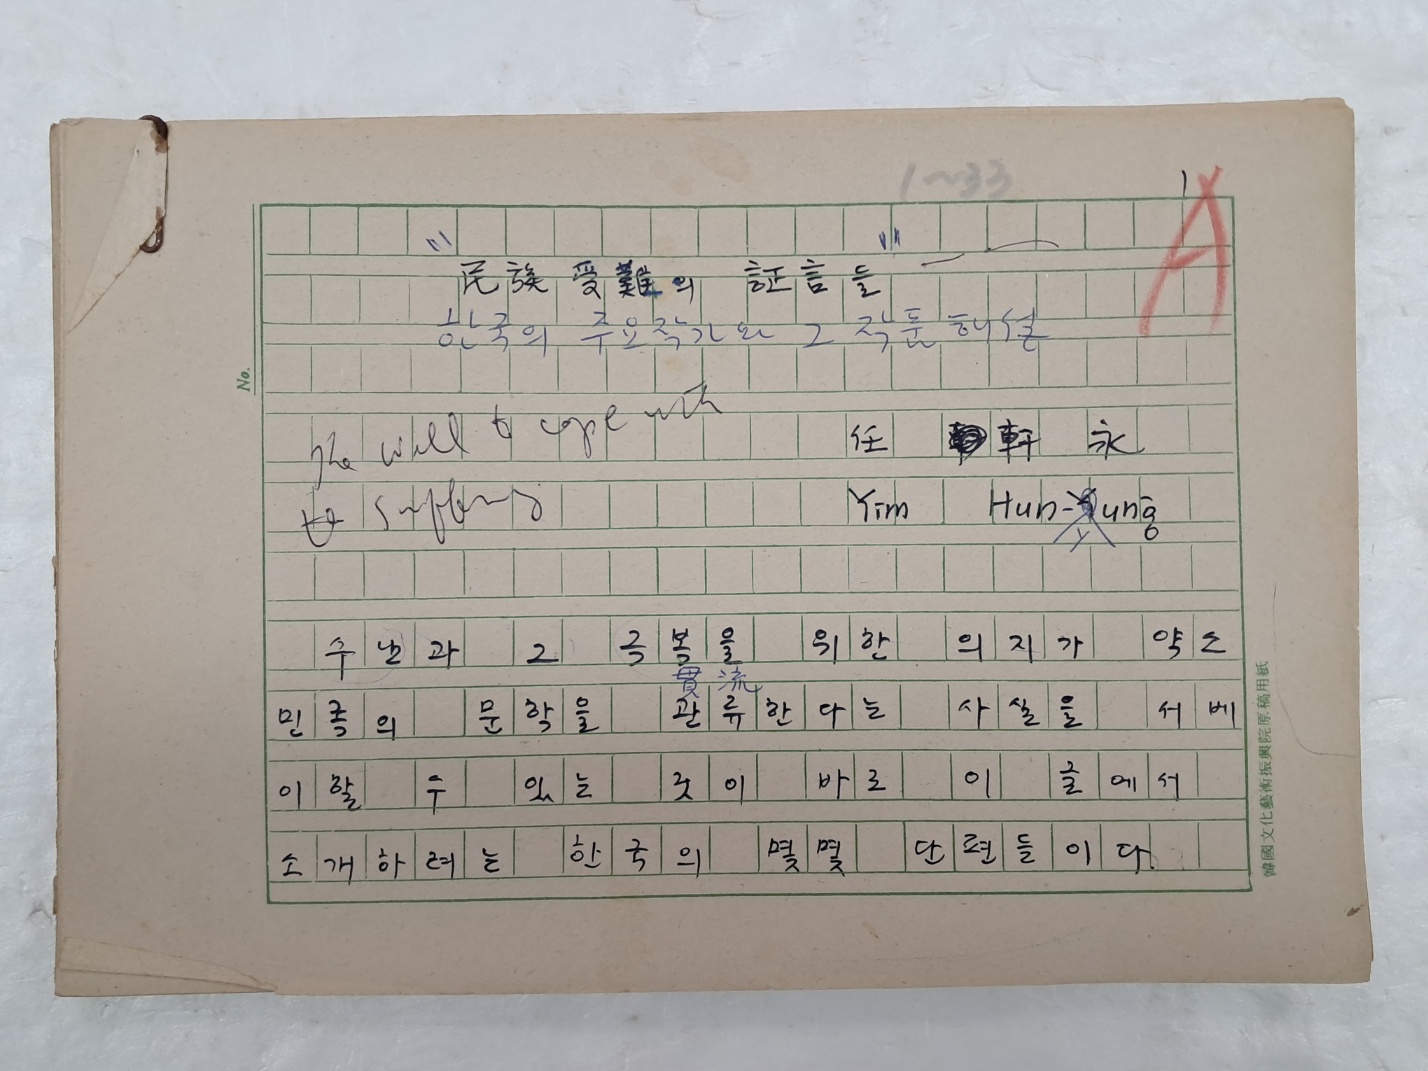 1~33
1
A
"民族受難의 証言들"
한국의 주요작가와 그 작품해설
No.
The will to cope with
任 軒 永
suffering
Yim Hun-Yung
y
수난과 그 극복을 위한 의지가 약소
貫流
민족의 문학을 관류한다는 사실을 서베
이할 수 있는 것이 바로 이 글에서
소개하려는 한국의 몇몇 단편들이다.
韓國文化藝術振興院原稿用紙